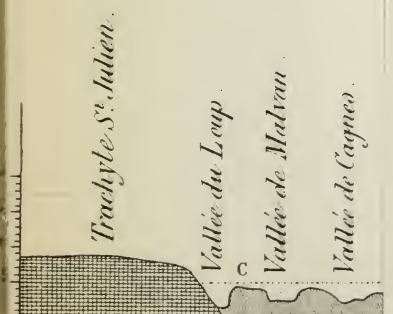 Trachyte St. Julien.
Vallée du Loup.
C
Vallée de Malvan.
Vallée de Cagnes.